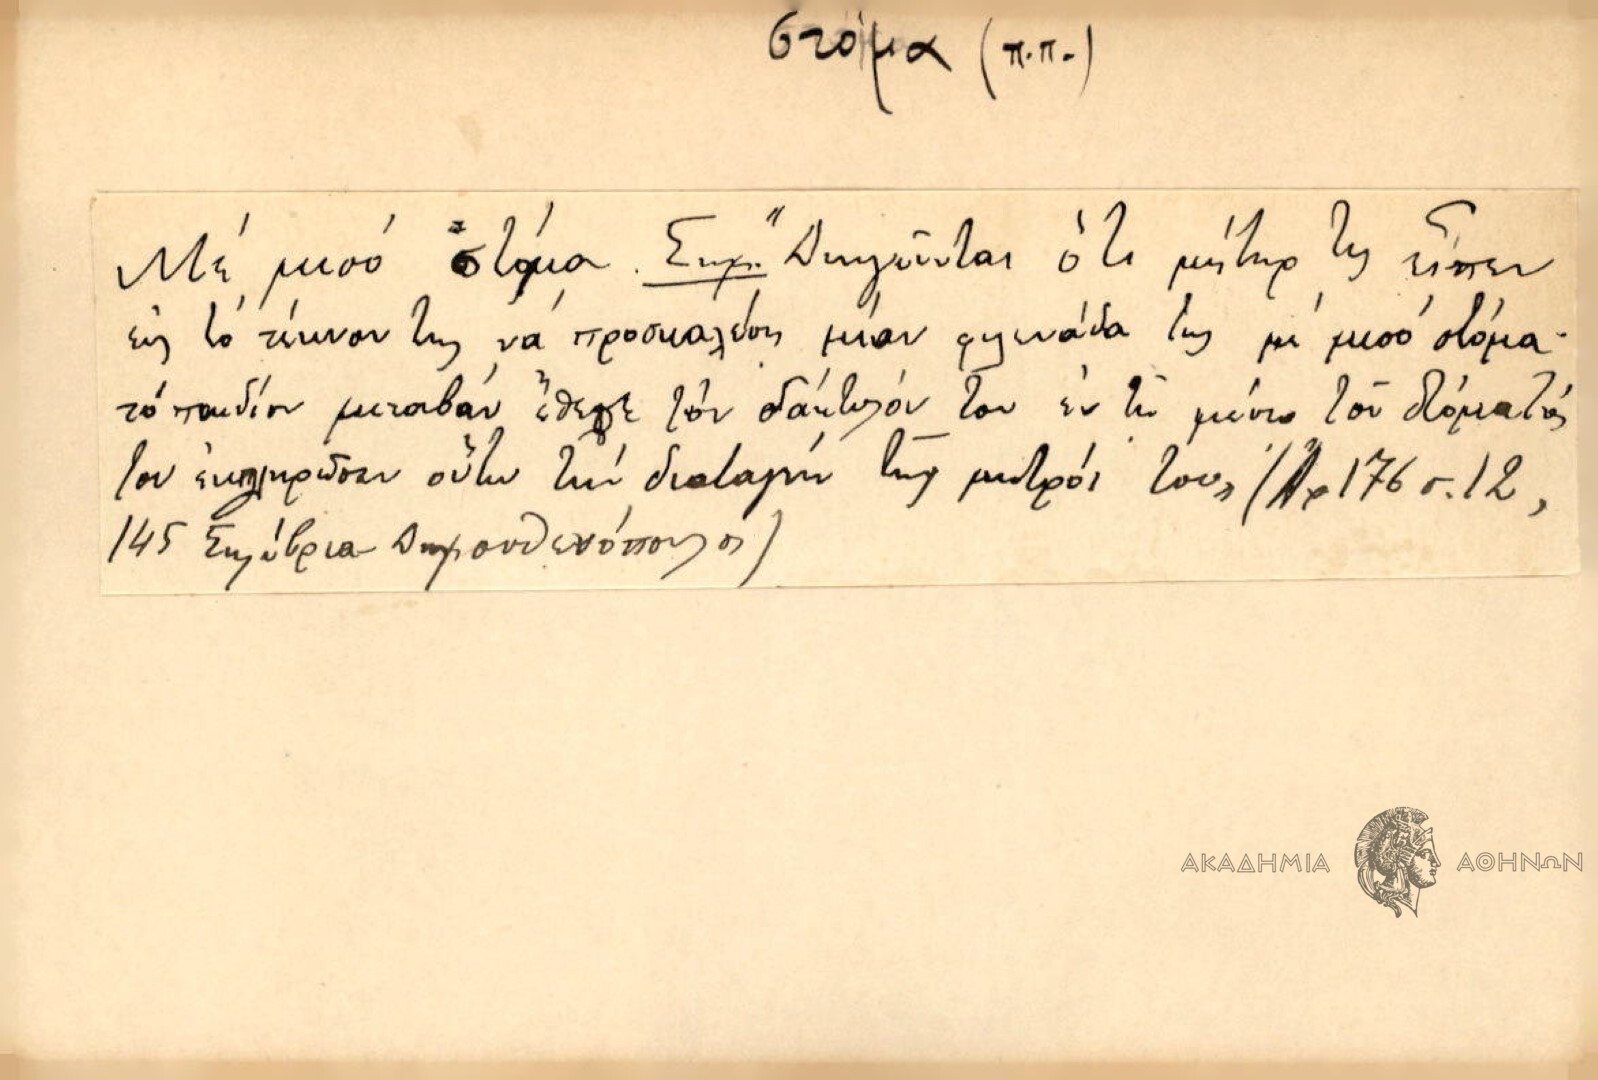 στόμα (π.π.)
Μέ μισό στόμα. Σημ. "Διηγοῦνται ὅτι μήτηρ τις εἶπεν
εἰς τό τέκνον της νά προσκαλέση μίαν φιλενάδα της μέ μισό στόμα·
τό παιδίον μεταβάν ἔθεσε τόν δάκτυλόν του ἐν τῷ μέσῳ τοῦ στόματός
του ἐκπληρῶσαν οὕτω τήν διαταγήν τῆς μητρός του" (Ἀρ 176 σ. 12,
145 Σηλύβρια Δημοσθενόπουλος)
ΑΚΑΔΗΜΙΑ ΑΘΗΝΩΝ